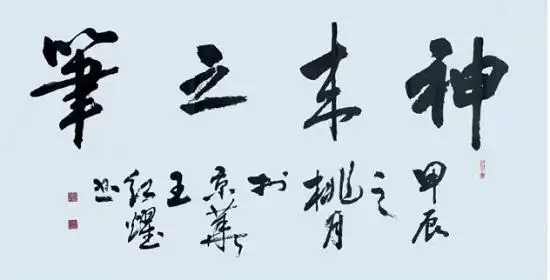 神来之筆
甲辰之桃月於京華王红耀书